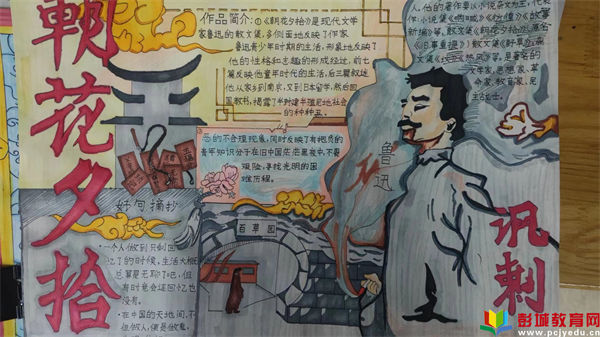 朝花夕拾
作品简介:①《朝花夕拾》是现代文学
家鲁迅的散文集,多侧面地反映了作家
鲁迅青少年时期的生活,形象地反映了
他的性格和志趣的形成经过,前七
篇反映他童年时代的生活,后三篇叙述
他从家乡到南京,又到日本留学,然后回
国教书,揭露了半封建半殖民地社会
的种种丑
恶的不合理现象,同时反映了有抱负的
青年知识分子在旧中国茫茫黑夜中,不畏
艰险,寻找光明的困
难历程。
人,他的著作要以小说杂文为主,代表
作:小说集《呐喊》《彷徨》《故事
新编》等,散文集《朝花夕拾》(原名
《旧事重提》)散文集《野草》杂
文集《坟》《热风》等,是著名的
文学家,思想家,革
命家,教育家,民
主战士。
鲁迅
讽刺
好句摘抄
·一个人做到只剩回
忆了的时候,生活大概
总算是无聊了吧,但
有时竟会连回忆也
没有。
·在中国的天地间,不
但做人,便是做鬼,
百草园
彭城教育网
www.pcjyedu.com